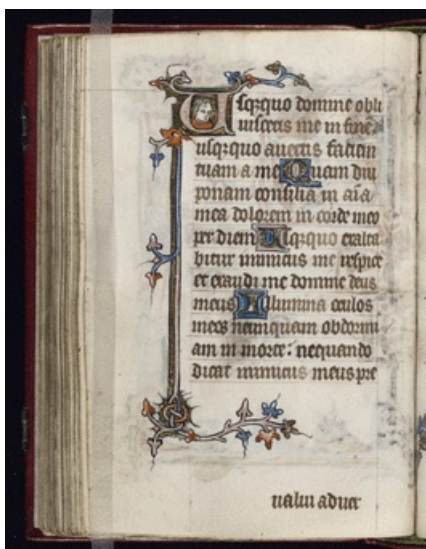 Usq3quo domine obli
uisceris me in finē
usq3quo auertis faciem
tuam a me Quam diu
ponam consilia in aīa
mea dolorem in corde meo
per diem Usq3quo exalta
bitur inimicus me respice
et exaudi me domine deus
meus Illumina oculos
meos ne umquam obdormi
am in morte: nequando
dicat inimicus meus pre
ualui aduer